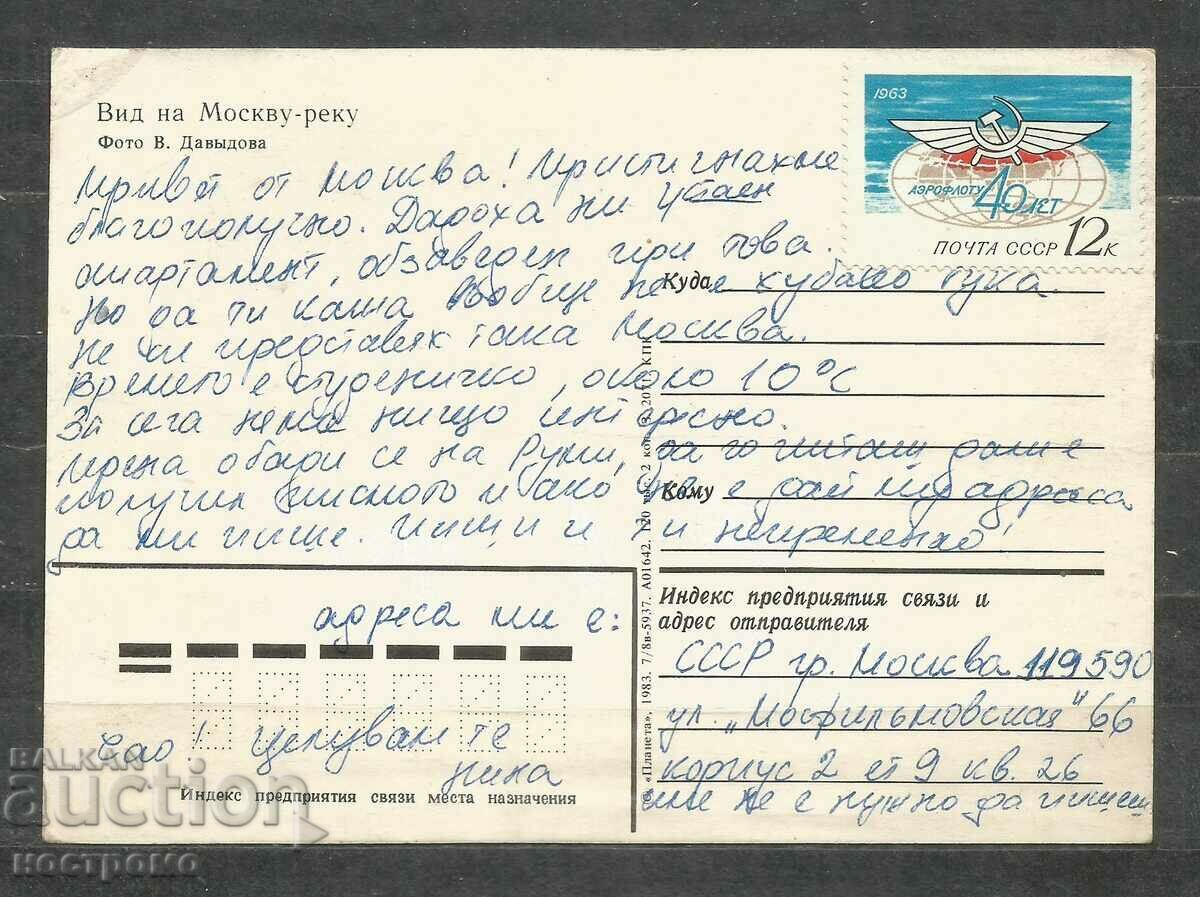 Вид на Москву-реку
Фото В. Давыдова
1963
АЭРОФЛОТУ 40 ЛЕТ
ПОЧТА СССР 12 К
Привет от Москва! Пристигнахме
благополучно. Дадоха ни
апартамент, обзаведен при това.
Но да ти кажа въобще не е хубаво тука.
Куда
не си представях така Москва.
времето е студеничко, около 10°C
За сега няма нищо интересно.
обади се на Руми, да го питаш дали е
получил писмото и ако не е дай му адреса
Кому
да ми пише. пиши и ти непременно!
адреса ми е:
Индекс предприятия связи и
адрес отправителя
СССР гр. Москва 119590
ул. „Мосфильмовская" 66
корпус 2 ет 9 кв. 26
име не е нужно да пишеш
Чао! Целувам те
Нина
Индекс предприятия связи места назначения
«Планета», 1983. 7/8в-5937. А01642. 120 тыс. 2 коп.
BALKAN
auction
костромо